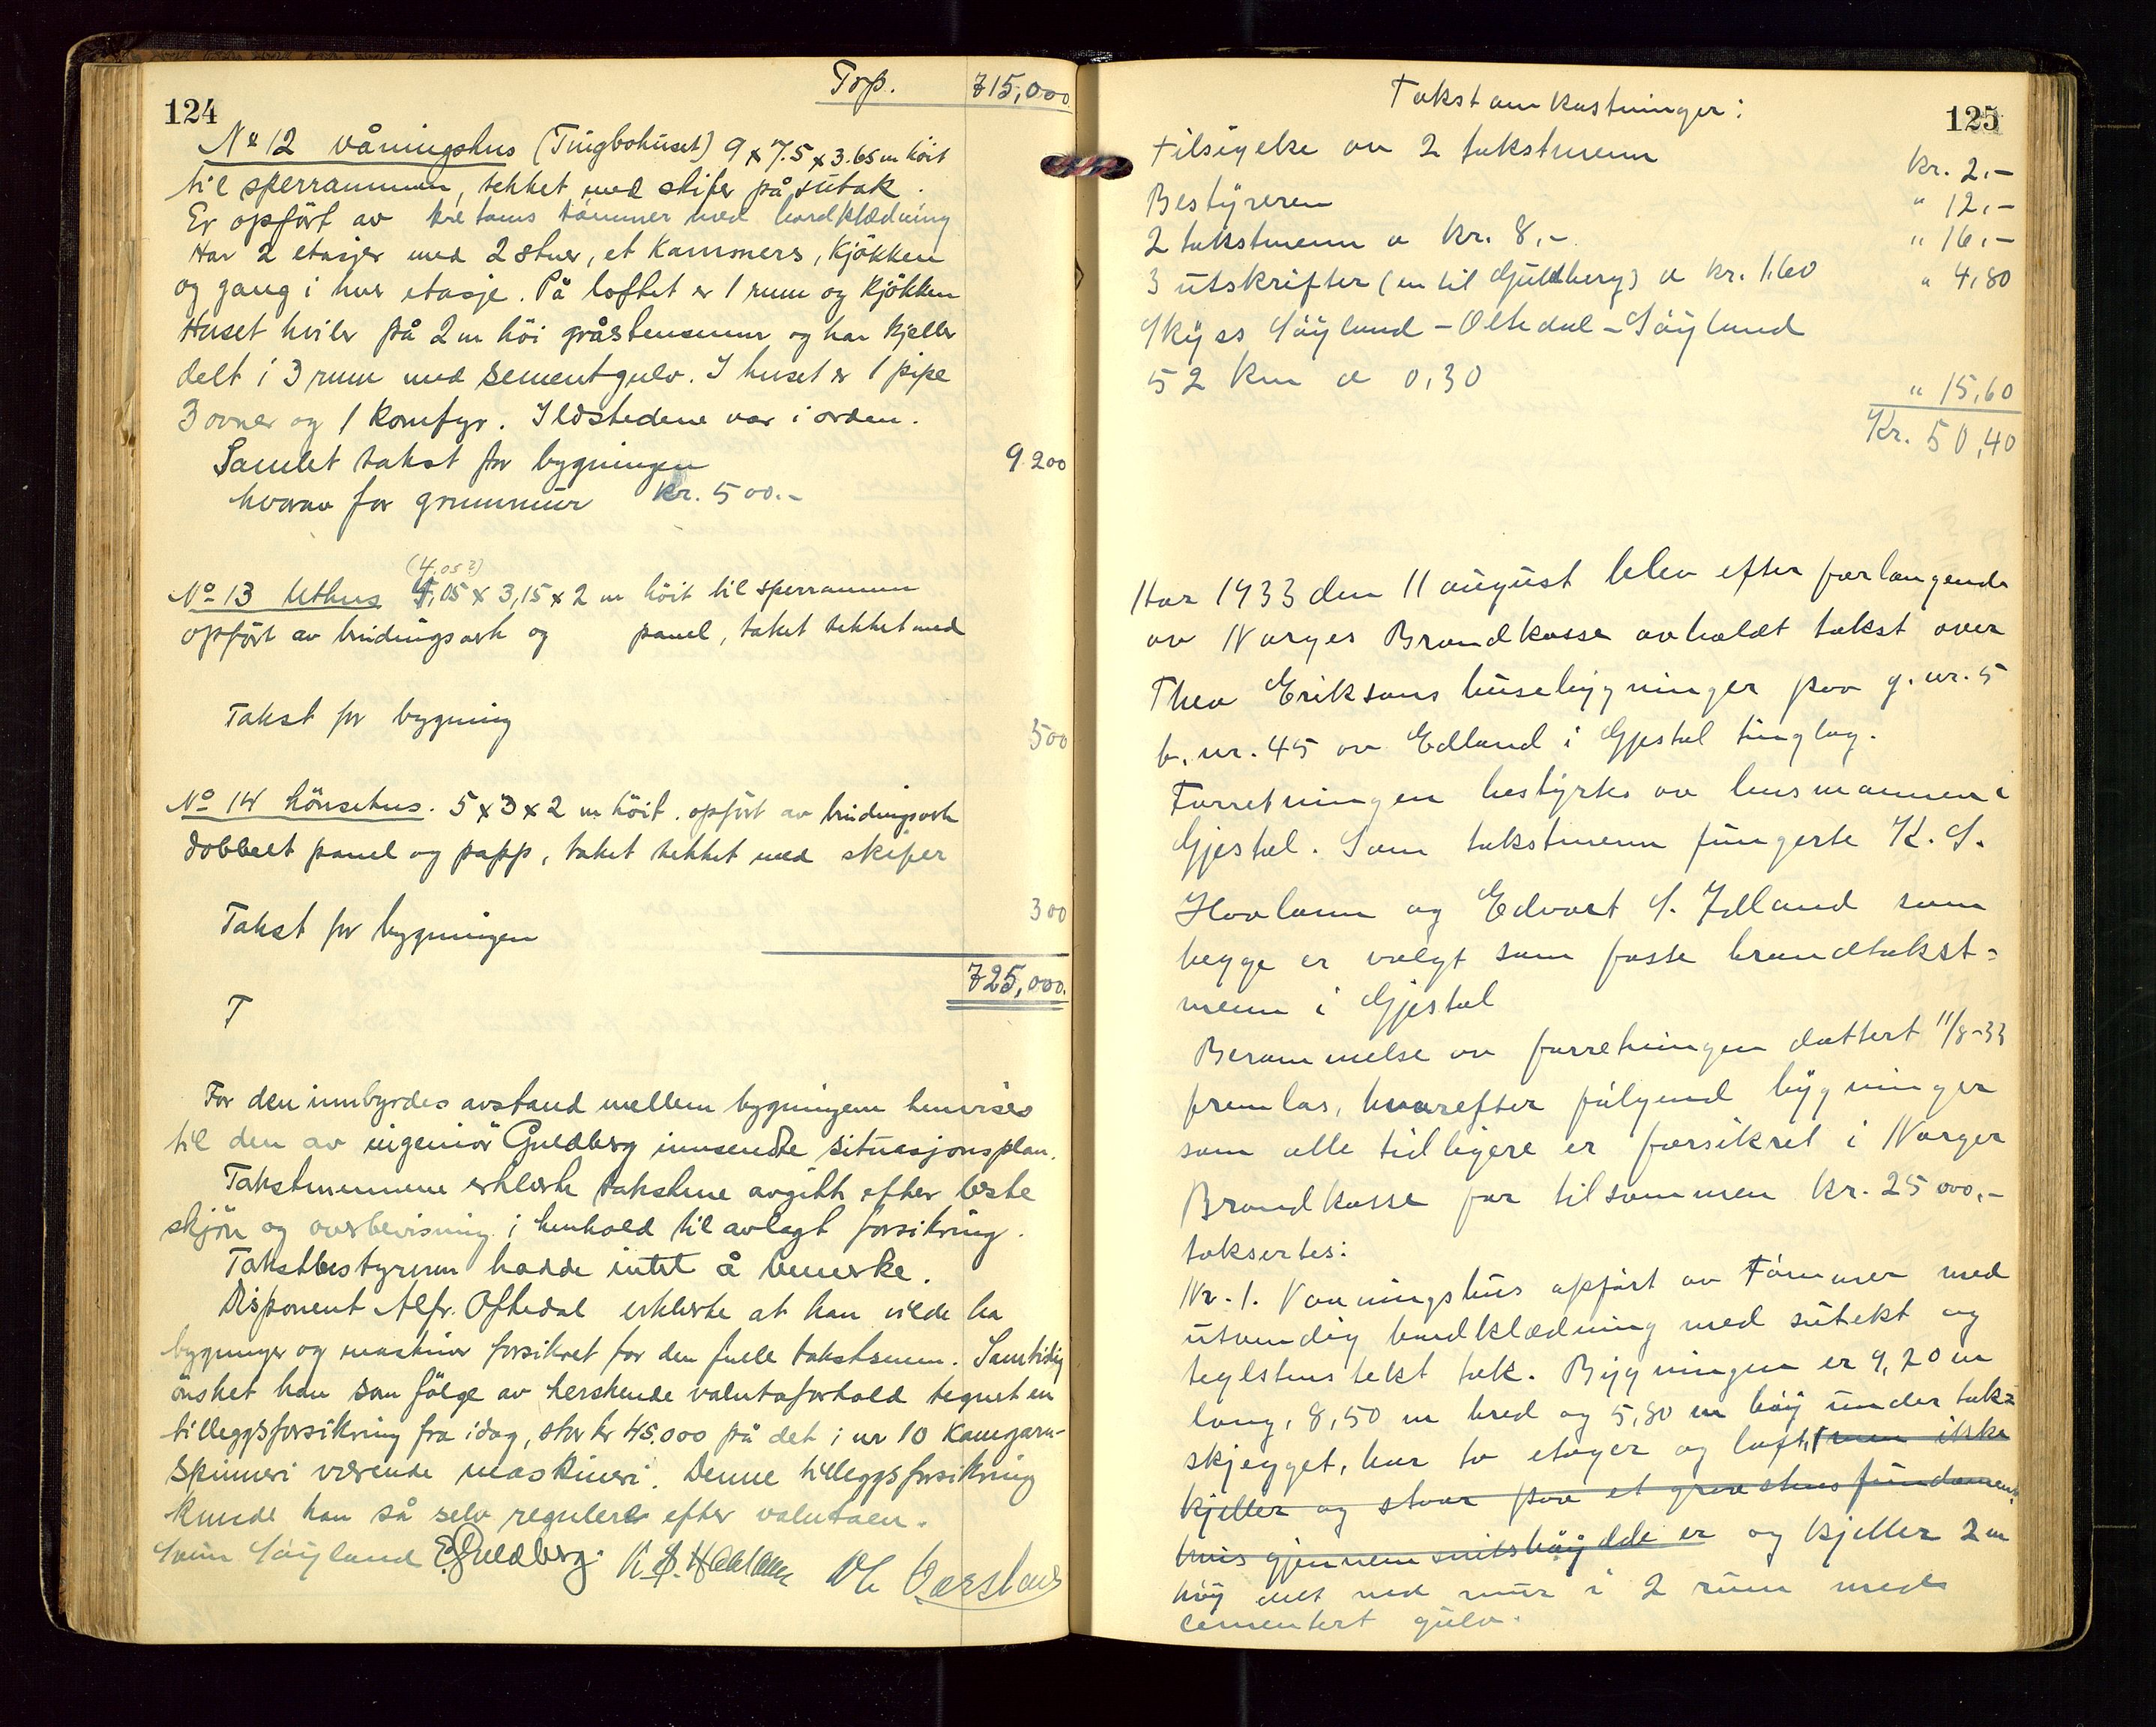 124
Trp. 715,000
No 12 våningshus (Tingbohuset) 9 x 7.5 x 3.65 m höit
til sperrammen, tekket med skifer på sutak.
Er opfört av tre toms tömmer med bordklædning
Har 2 etasjer med 2 stuer, et Kammers, Kjökken
og gang i hver etasje. På loftet er 1 rum og Kjökken
Huset hviler på 2 m höi gråstensmur og har Kjeller
delt i 3 rum med sementgulv. I huset er 1 pipe
3 ovner og 1 Komfyr. Ildstedene var i orden.
Samlet takst for bygningen 9.200
hvorav for grunnmur kr. 500.-
(4,05?)
No 13 Uthus 4,05 x 3,15 x 2 m höit til sperrammen
opfört av bindingsverk og panel, taket tekket med
Takst for bygning 500
No 14 hönsehus. 5 x 3 x 2 m höit. opfört av bindingsverk
dobbelt panel og papp, taket tekket med skifer
Takst for bygningen 300
725,000.
T
For den innbyrdes avstand mellem bygningene henvises
til den av ingeniör Guldberg innsendte situasjonsplan.
Takstmennene erklærte takstene avgitt efter beste
skjön og overbevisning i henhold til avlagt forsikring.
Takstbestyreren hadde intet å bemerke.
Disponent Alfr. Oftedal erklærte at han vilde ha
bygninger og maskiner forsikret for den fulle takstsum. Samtidig
önsket han som fölge av herskende valutaforhold tegnet en
tilleggsforsikring fra idag, stor kr 45.000 på det i nr 10 Kamgarn-
spinneri værende maskineri. Denne tilleggsforsikring
kunde han så selv regulere efter valutaen.
Svein Söyland E. Guldberg. K. S. Haaland
125
Takstomkostninger:
Tilsigelse av 2 takstmenn kr. 2,-
Bestyreren " 12,-
2 takstmenn a kr. 8,- " 16,-
3 utskrifter (en til Guldberg) a kr. 1,60 " 4,80
Skyss Söyland - Oltedal - Söyland
52 km a 0,30 " 15,60
Kr. 50,40
Aar 1933 den 11 august blev efter forlangende
av Norges Brandkasse avholdt takst over
Theo Eriksons husebygninger paa g. nr. 5
b. nr. 45 av Edland i Gjestal tinglag.
Forretningen bestyrtes av lensmannen i
Gjestal. Som takstmenn fungerte K. S.
Haaland og Edvart S. Idland som
begge er valgt som faste brandtakst-
menn i Gjestal
Berammelse av forretningen dattert 11/8-33
fremlas, hvorefter fölgend bygninger
som alle tidligere er forsikret i Norges
Brandkasse for tilsammen kr. 25 000,-
taksertes:
Nr. 1. Vaaningshus opfört av Tömmer med
utvendig bordklædning med sutekt og
teglstenstekt tak. Bygningen er 9,20 m
lang, 8,50 m bred og 5,80 m höy under tak-
skjegget, har to etager og loft, men ikke
kjeller og staar paa et graastens fundament
hvis gjennemsnitshöydde er og kjeller 2 m
höy delt med mur i 2 rum med
cementert gulv.